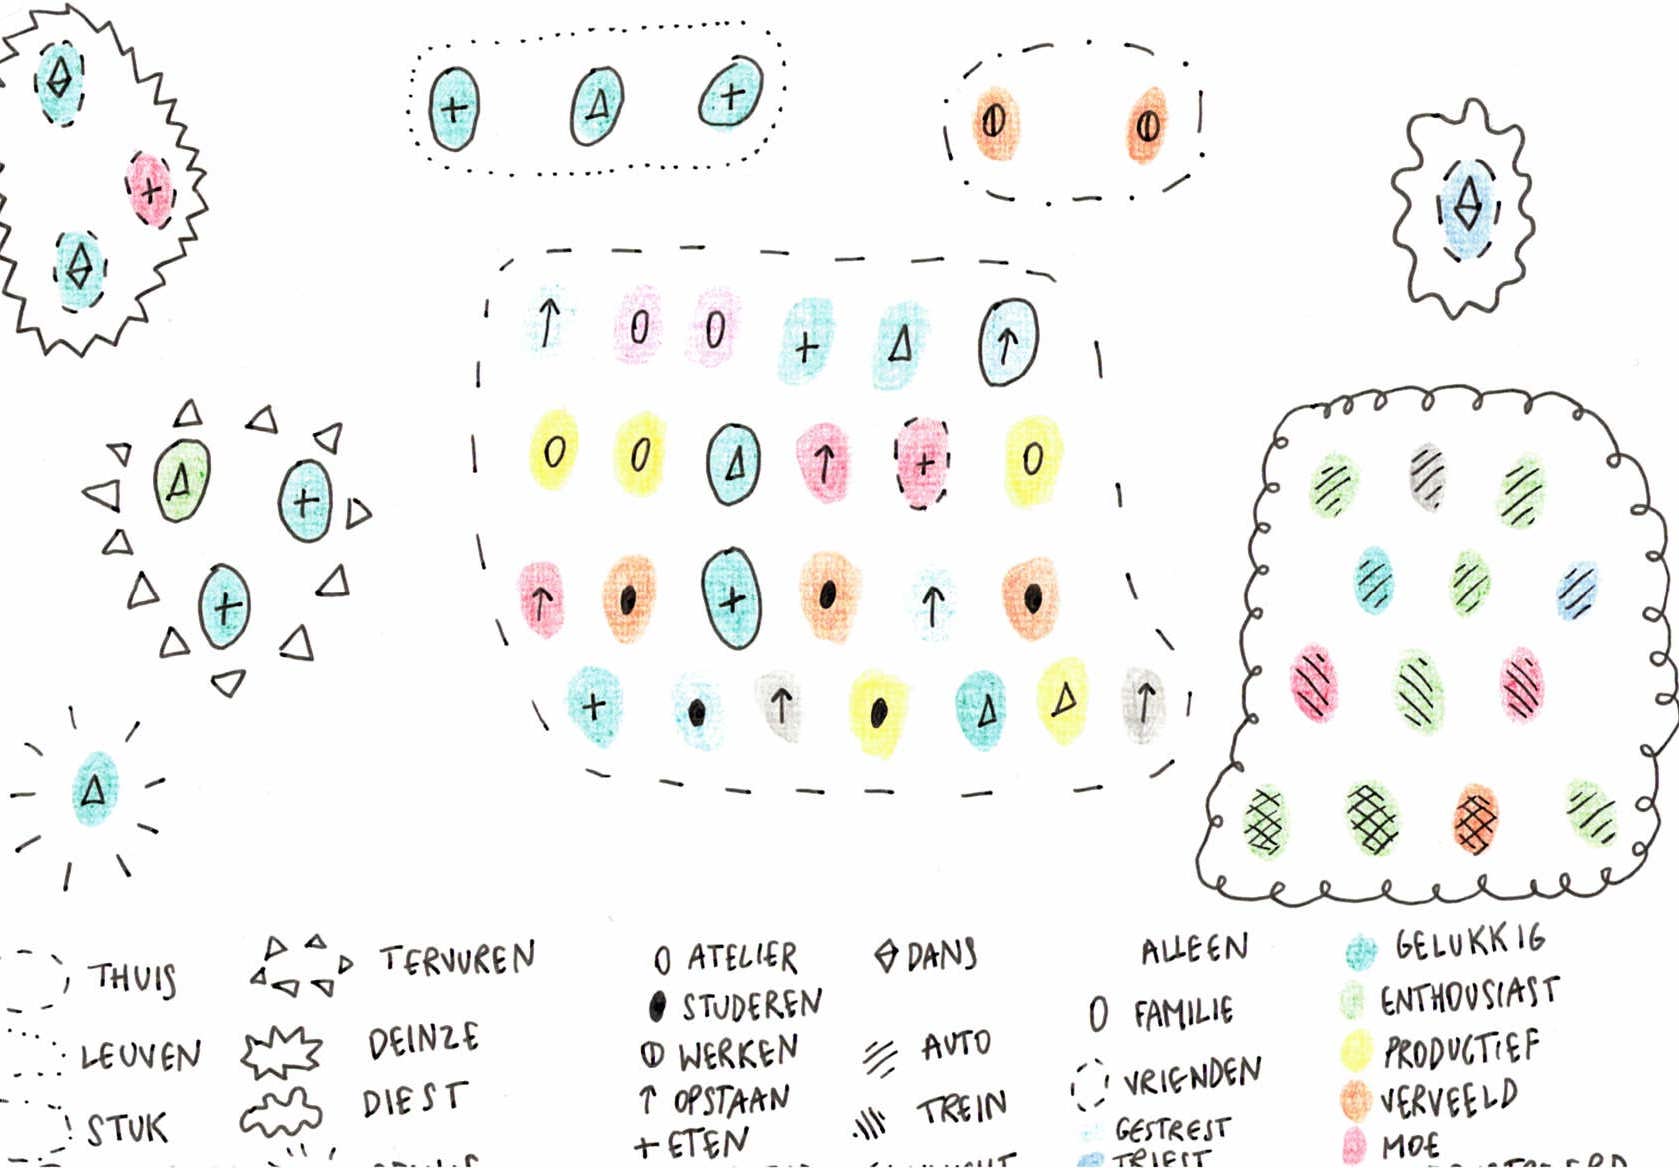 THUIS
LEUVEN
STUK
TERVUREN
DEINZE
DIEST
O ATELIER
STUDEREN
WERKEN
↑ OPSTAAN
+ ETEN
DANS
AUTO
TREIN
ALLEEN
FAMILIE
VRIENDEN
GESTREST
TRIEST
GELUKKIG
ENTHOUSIAST
PRODUCTIEF
VERVEELD
MOE